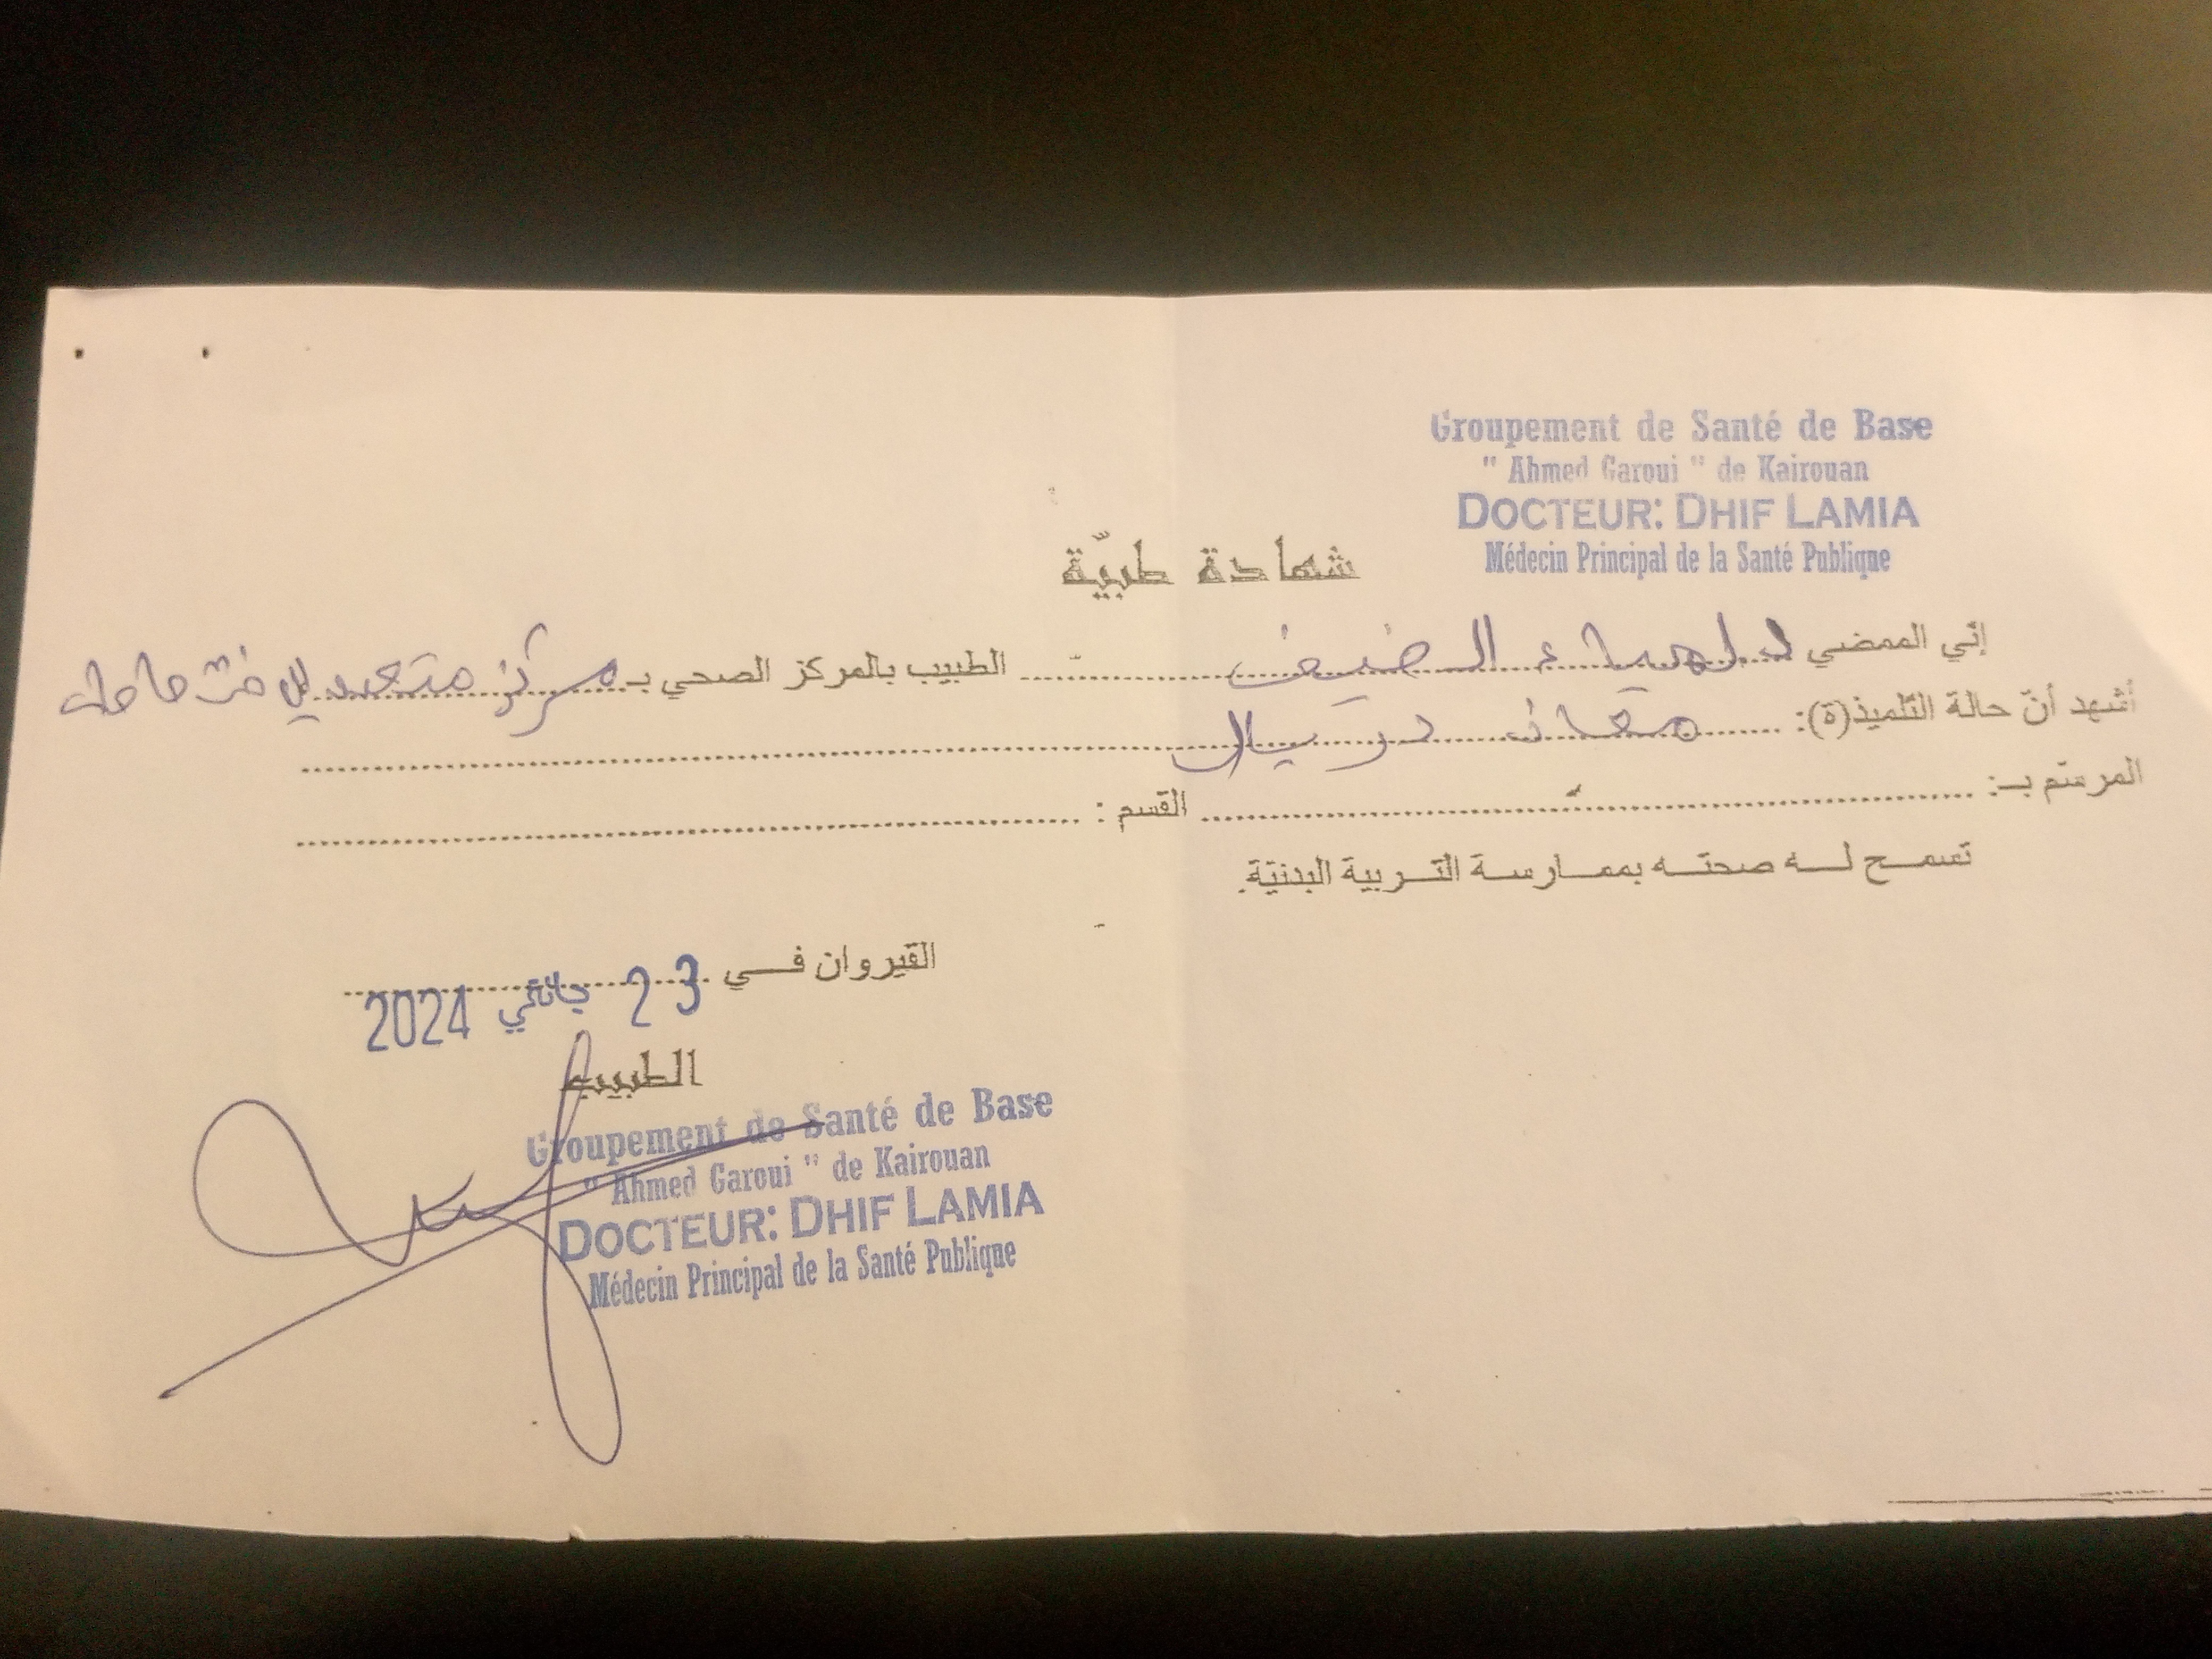 Groupement de Santé de Base
" Ahmed Garoui " de Kairouan
DOCTEUR: DHIF LAMIA
Médecin Principal de la Santé Publique
شهادة طبيّة
إنّي الممضي د. لمياء الضيف الطبيب بالمركز الصحي بـ مركز متعدد
أشهد أنّ حالة التّلميذ(ة):
المرسّم بـ: القسم :
تسمح له صحته بممارسة التربية البدنيّة.
القيروان في 23 جانفي 2024
الطبيب
Groupement de Santé de Base
" Ahmed Garoui " de Kairouan
DOCTEUR: DHIF LAMIA
Médecin Principal de la Santé Publique